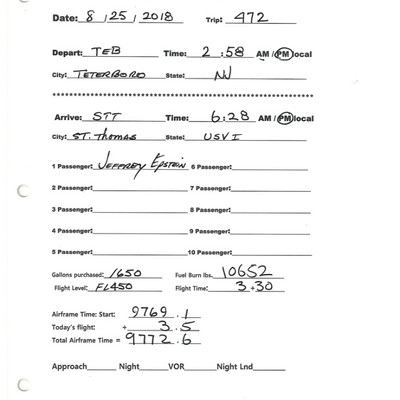 Date: 8 / 25 / 2018 Trip: 472
Depart: TEB Time: 2 : 58 AM / PM local
City: TETERBORO State: NJ
Arrive: STT Time: 6:28 AM / PM local
City: ST. Thomas State: USVI
1 Passenger: JEFFREY EPSTEIN 6 Passenger:
2 Passenger: 7 Passenger:
3 Passenger: 8 Passenger:
4 Passenger: 9 Passenger:
5 Passenger: 10 Passenger:
Gallons purchased: 1650 Fuel Burn lbs. 10652
Flight Level: FL450 Flight Time: 3+30
Airframe Time: Start: 9769.1
Today's flight: + 3.5
Total Airframe Time = 9772.6
Approach Night VOR Night Lnd